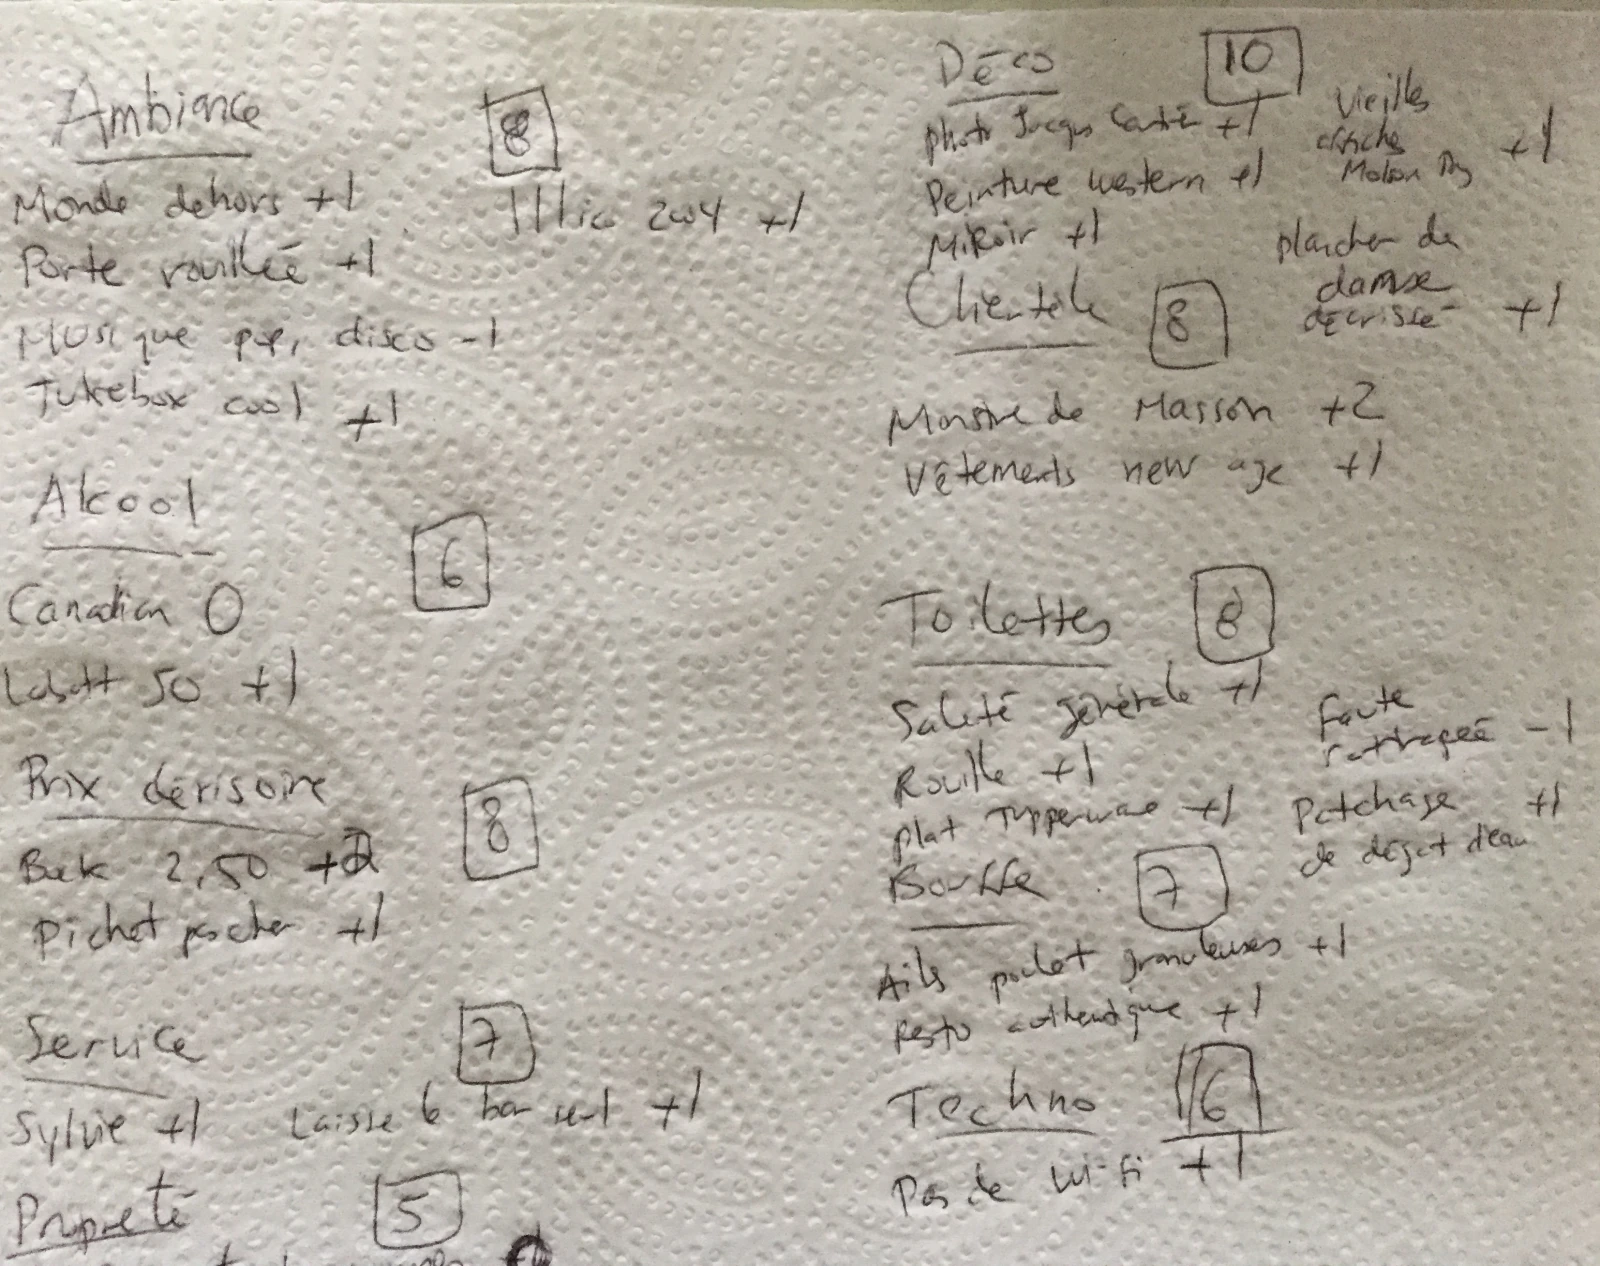 Ambiance 8
Monde dehors +1
Illico 2004 +1
Porte rouillée +1
Musique pop, disco -1
Jukebox cool +1
Alcool 6
Canadian 0
Labatt 50 +1
Prix dérisoire 8
Buck 2,50 +2
Pichet pas cher +1
Service 7
Sylvie +1 Laisse le bar seul +1
Propreté 5
Déco 10
Photo Jacques +1
Peinture western +1
Miroir +1
Vieilles
affiches
Molson +1
plancher de
danse
décrissé +1
Clientèle 8
Monstre de Masson +2
Vêtements new age +1
Toilettes 8
Saleté générale +1
Rouille +1
Plat Tupperware +1
Faute
rattrapée -1
Patchage +1
de dégat d'eau
Bouffe 7
Ails pocket granuleuses +1
Resto authentique +1
Techno 6
Pas de Wi-fi +1